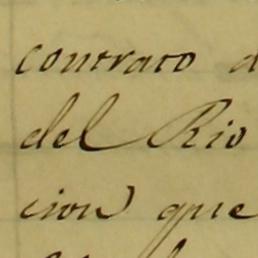 contrato d
del Rio
cion que